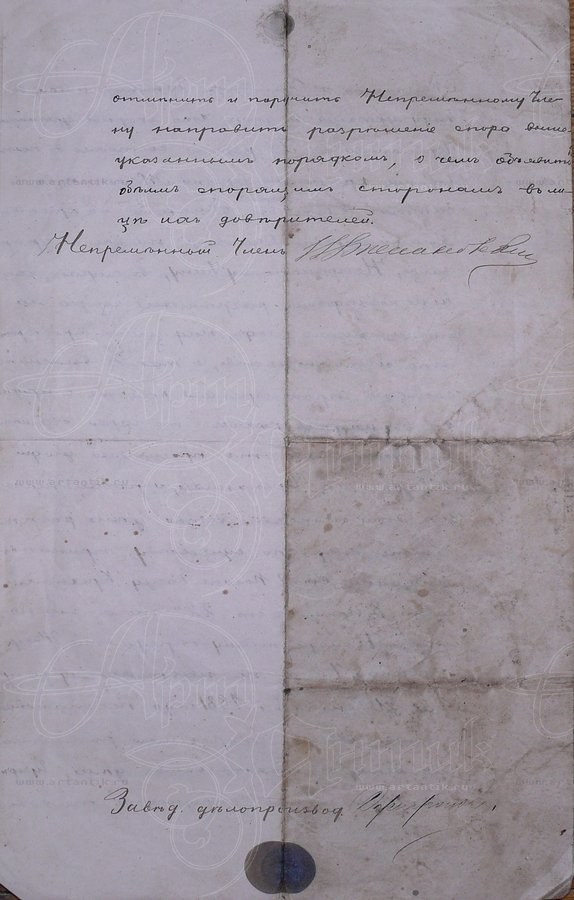 отмѣнить и поручить Непремѣнному Чле-
ну направить разрѣшеніе спора выше-
указаннымъ порядкомъ, о чемъ объявить
обѣимъ спорящимъ сторонамъ въ ли-
цѣ ихъ довѣрителей.
Непремѣнной Членъ
Завѣд. дѣлопроизвод.
www.artantik.ru